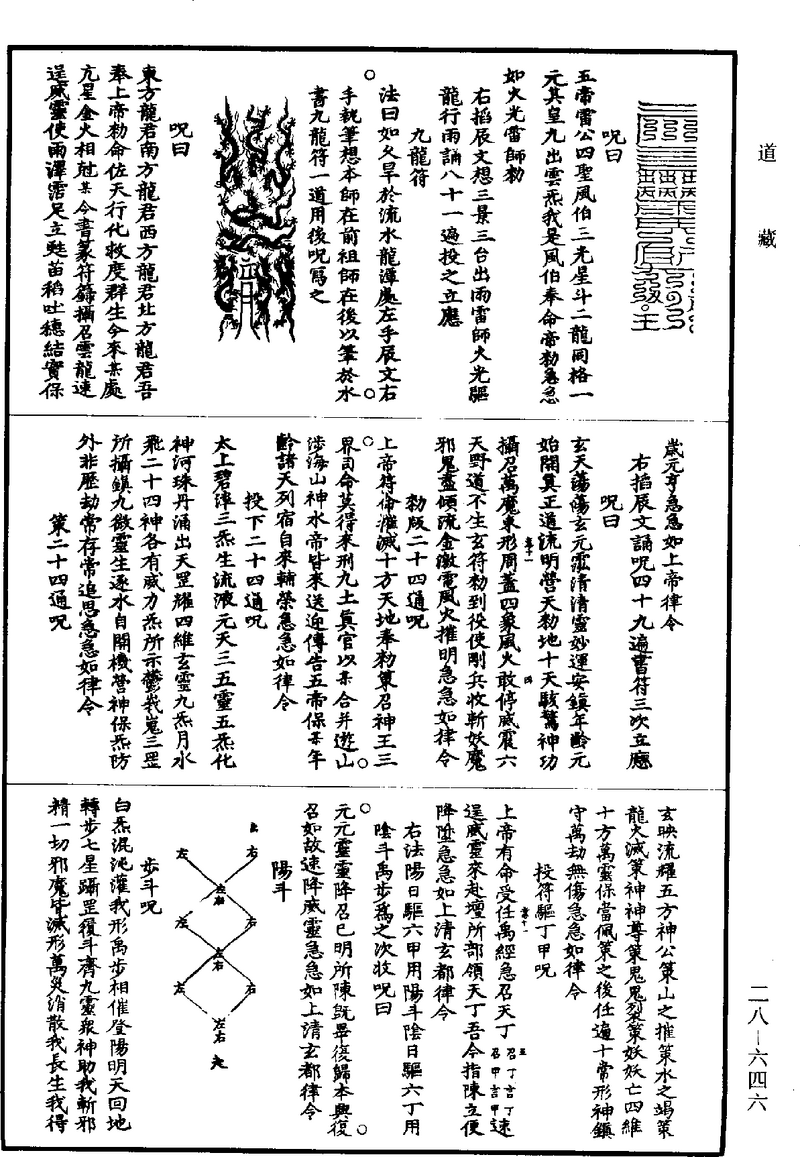 道藏
呪曰
五帝雷公四聖風伯三光星斗二龍同格一
元其皇九出雲炁我是風伯奉命帝勑急急
如火光雷師勑
右掐辰文想三景三台出雨雷師火光驅
龍行雨誦八十一遍投之立應
九龍符
法曰如久旱於流水龍潭處左手辰文右
手執筆想本師在前祖師在後以筆於水
書九龍符一道用後呪寫之
呪曰
東方龍君南方龍君西方龍君北方龍君吾
奉上帝勑命佐天行化救度群生今來某處
亢星金火相尅某今書篆符籙攝召雲龍速
逞威靈使雨澤霑足立甦苗稻吐穗結實保
歲元亨急急如上帝律令
右掐辰文誦呪四十九遍書符三次立應
呪曰
玄天蕩蕩玄元霐清清靈妙運安鎮年齡元
始開真正道流明營天勑地十天駭驚神功
攝召萬魔束形周蓋四象風火敢停威震六
天野道不生玄符勑到役使剛兵收斬妖魔
邪鬼盡傾流金激電風火摧明急急如律令
勑版二十四通呪
上帝符命摧滅十方天地奉勑尊召神王三
界司命莫得來刑九土真官以某合并遊山
涉海山神水帝皆來送迎傳告五帝保某年
齡諸天列宿自來輔榮急急如律令
投下二十四通呪
太上碧潭三炁生流液元天三五靈五炁化
神河珠丹涌出天罡耀四維玄靈九炁月水
飛二十四神各有威力炁所示鬱峩嵬三罡
所攝鎮九微靈生逐水自開機營神保炁防
外非歷劫常存常追思急急如律令
策二十四通呪
玄映流耀五方神公策山之摧策水之竭策
龍火滅策神神尊策鬼鬼裂策妖妖亡四維
十方萬靈保當佩策之後任遍十常形神鎮
守萬劫無傷急急如律令
投符驅丁甲呪
上帝有命受任禹經急召天丁召丁言丁召甲言甲速
逞威靈來赴壇所部領天丁吾今指陳立便
降陞急急如上清玄都律令
右法陽日驅六甲用陽斗陰日驅六丁用
陰斗禹步爲之次收呪曰
元元靈靈降召已明所陳旣畢復歸本興復
召如故速降威靈急急如上清玄都律令
陽斗
右
左
左右
右
左
左右
右
左
左右
步斗呪
白炁混沌灌我形禹步相催登陽明天回地
轉步七星躡罡履斗齊九靈衆神助我斬邪
精一切邪魔皆滅形萬災消散我長生我得
二八-六四六